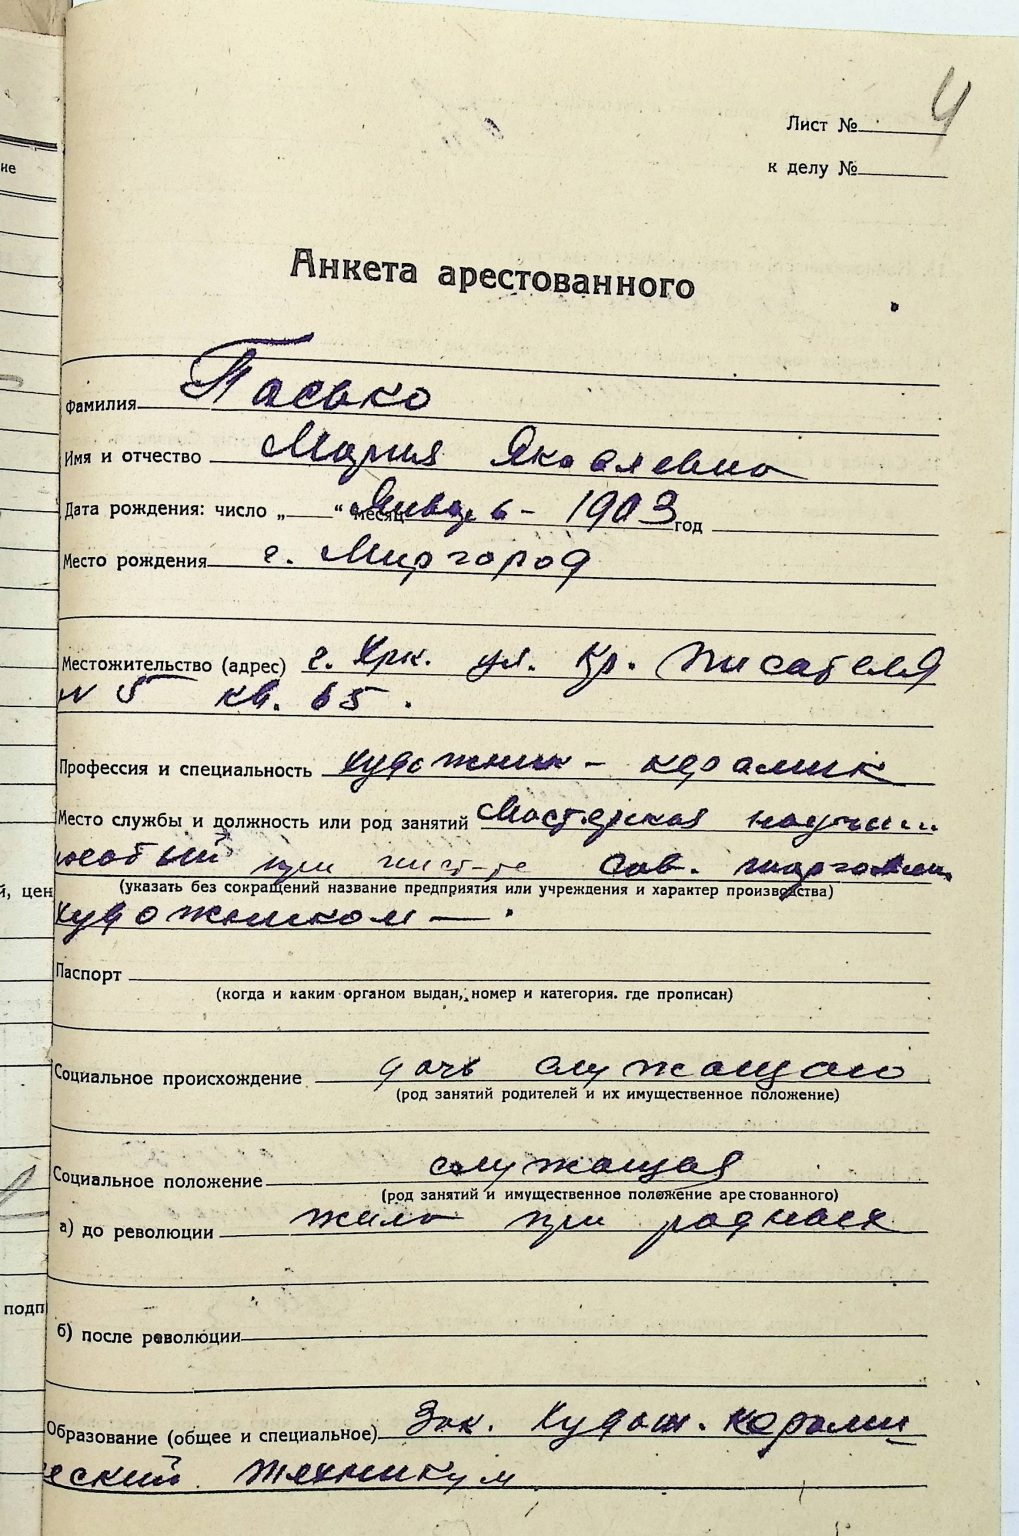 ие
й, цен
подп
4
Лист №
к делу №
Анкета арестованного
Фамилия Пасько
Имя и отчество Мария Яковлевна
Дата рождения: число „ “ месяц Январь - 1903 год
Место рождения г. Миргород
Местожительство (адрес) г. Хрк. ул. Кр. Писателя
N 5 кв. 65.
Профессия и специальность Художник - керамик
Место службы и должность или род занятий Мастерская
при сав.
(указать без сокращений название предприятия или учреждения и характер производства)
Художником — .
Паспорт
(когда и каким органом выдан, номер и категория. где прописан)
Социальное происхождение дочь служащаго
(род занятий родителей и их имущественное положение)
Социальное положение служащая
(род занятий и имущественное положение арестованного)
а) до революции жила при родных
б) после революции
Образование (общее и специальное) Зак. Худож. Керами
ческий Техникум